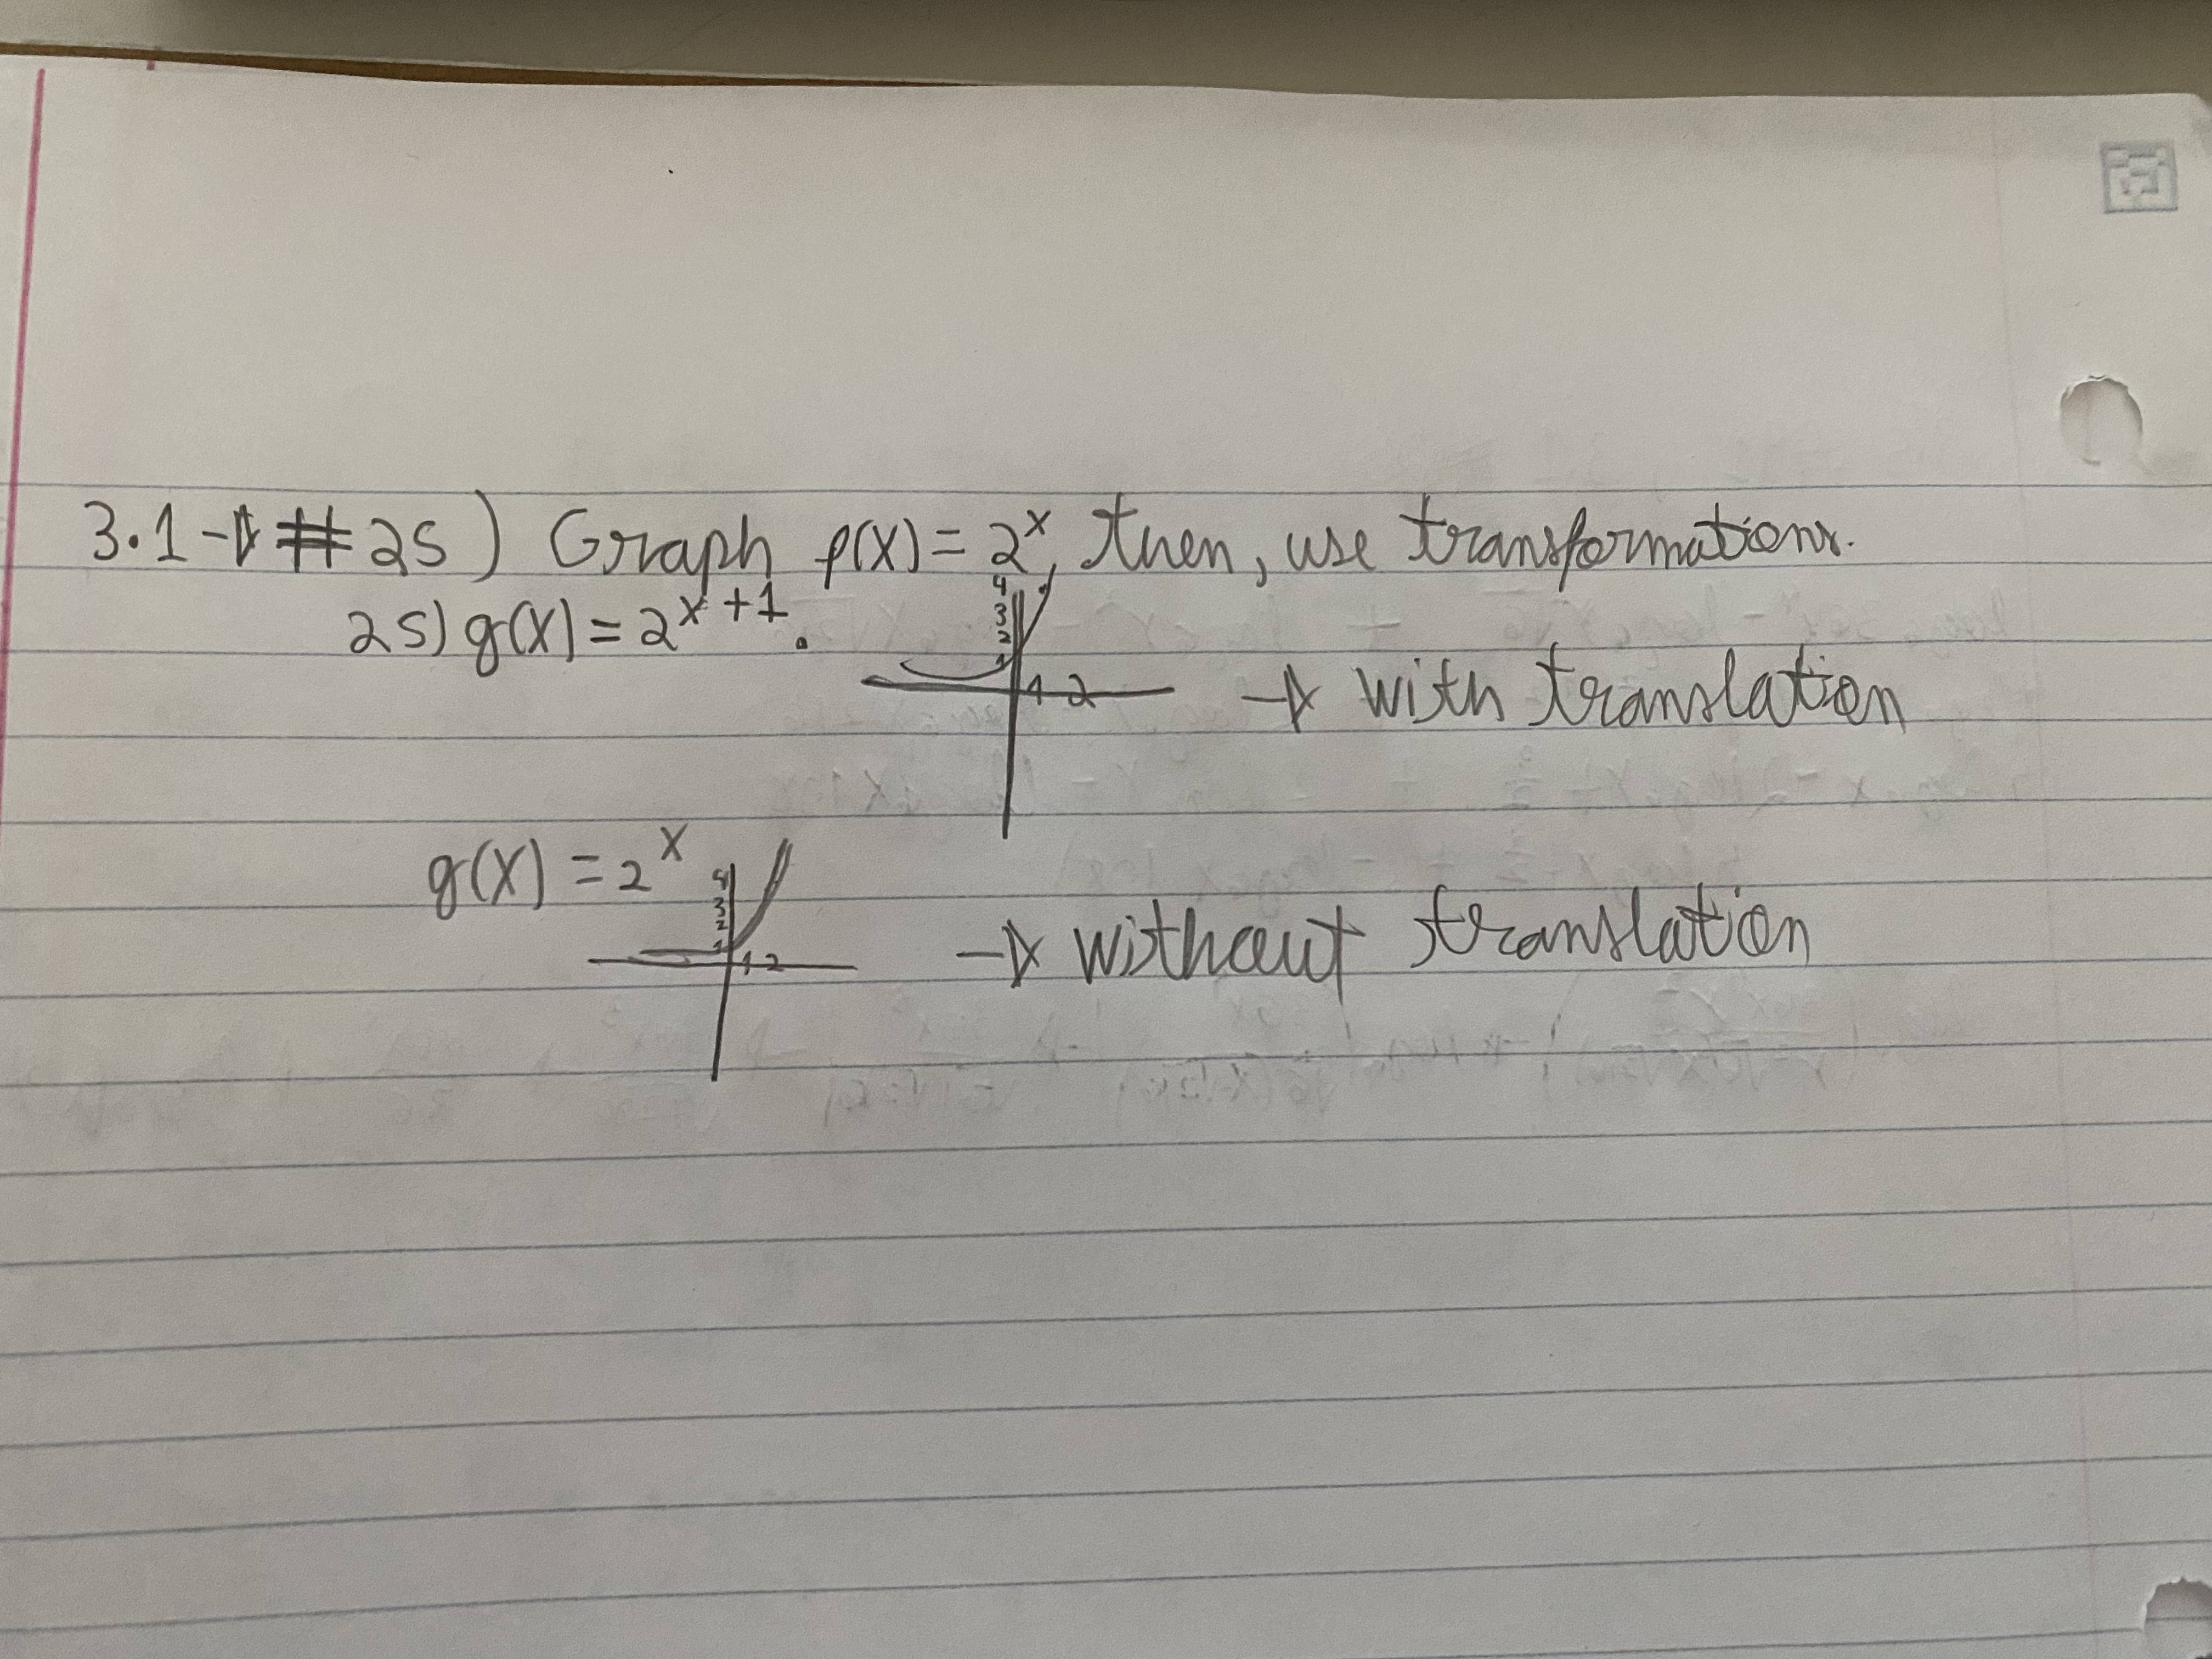 3.1 → #25) Graph f(x) = 2^x, then, use transformations.
25) g(x) = 2^x+1.
4
3
2
1
1 2 → with translation
g(x) = 2^x
4
3
2
1
1 2 → without translation